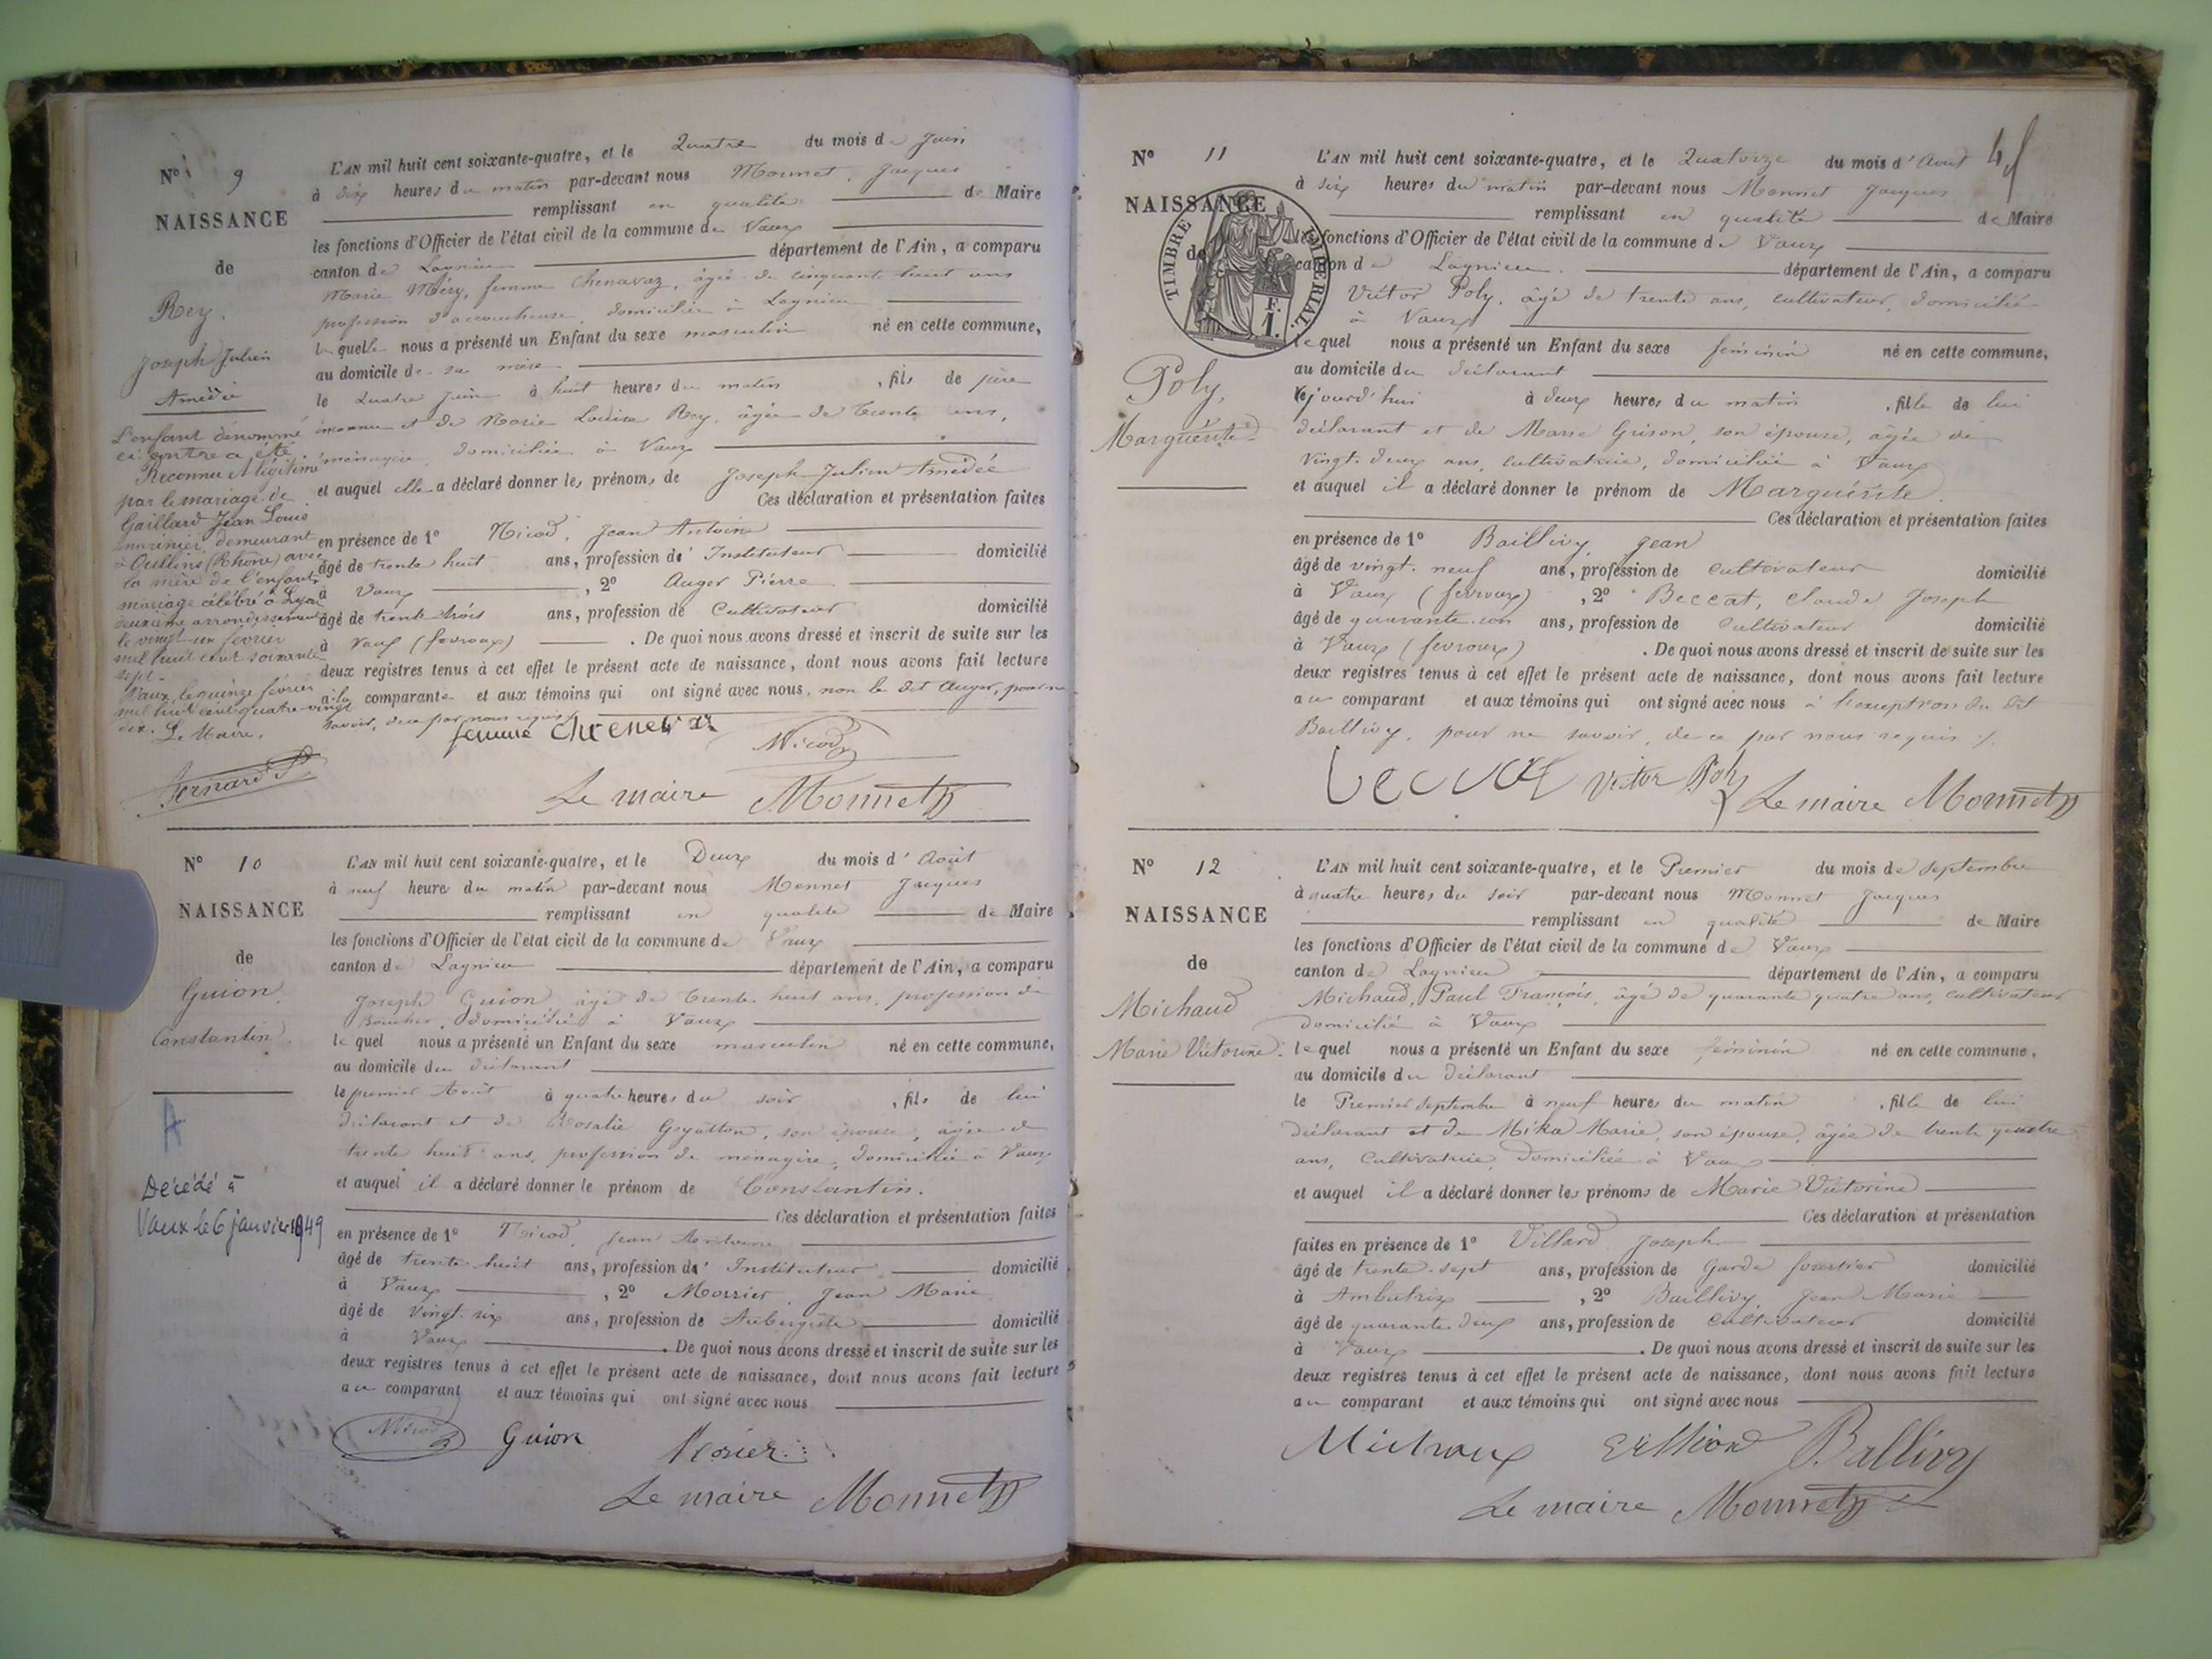 N° 9
NAISSANCE
de
Rey.
Joseph Julien
Amédé
L'enfant dénommé
ci-contre a été
Reconnu et légitimé
par le mariage de
Gaillard Jean Louis
marinier, demeurant
à Oullins (Rhône) avec
la mère de l'enfant
mariage célébré à Lyon
deuxième arrondissement
le vingt-un février
mil huit cent soixante
sept.-
Vaux, le quinze février
mil huit cent quatre-vingt
dix. Le Maire,
L'AN mil huit cent soixante-quatre, et le Quatre du mois de Juin
à dix heures du matin par-devant nous Monnet, Jacques
remplissant en qualité de Maire
les fonctions d'Officier de l'état civil de la commune de Vaux
canton de Lagnieu département de l'Ain, a comparu
Marie Méry, femme Chenavaz, âgée de cinquante huit ans
profession d'accoucheuse, domiciliée à Lagnieu
laquelle nous a présenté un Enfant du sexe masculin né en cette commune,
au domicile de sa mère
le quatre Juin à huit heures du matin, fils de père
inconnu et de Marie Louise Rey, âgée de trente ans,
ménagère, domiciliée à Vaux
et auquel elle a déclaré donner les prénoms de Joseph Julien Amédée
Ces déclaration et présentation faites
en présence de 1° Nicod, Jean Antoine
âgé de trente huit ans, profession d'Instituteur domicilié
à Vaux, 2° Auger Pierre
âgé de trente trois ans, profession de Cultivateur domicilié
à Vaux (fevroux). De quoi nous avons dressé et inscrit de suite sur les
deux registres tenus à cet effet le présent acte de naissance, dont nous avons fait lecture
à la comparante et aux témoins qui ont signé avec nous, non le dit Auger, pour ne
savoir, de ce par nous requis
femme Chenevaz
Nicod
Le maire Monnet
N° 10
NAISSANCE
de
Guion
Constantin.
A
Décédé à
Vaux le 6 janvier 1949
L'AN mil huit cent soixante-quatre, et le Deux du mois d'Août
à neuf heure du matin par-devant nous Monnet Jacques
remplissant en qualité de Maire
les fonctions d'Officier de l'état civil de la commune de Vaux
canton de Lagnieu département de l'Ain, a comparu
Joseph Guion, âgé de trente huit ans, profession de
Boucher, domicilié à Vaux
lequel nous a présenté un Enfant du sexe masculin né en cette commune,
au domicile du déclarant
le premier Août à quatre heures du soir, fils de lui
déclarant et de Rosalie, son épouse, âgée de
trente huit ans, profession de ménagère, domiciliée à Vaux
et auquel il a déclaré donner le prénom de Constantin.
Ces déclaration et présentation faites
en présence de 1° Nicod, Jean Antoine
âgé de trente huit ans, profession d'Instituteur domicilié
à Vaux, 2° Morrier Jean Marie
âgé de vingt six ans, profession de Aubergiste domicilié
à Vaux. De quoi nous avons dressé et inscrit de suite sur les
deux registres tenus à cet effet le présent acte de naissance, dont nous avons fait lecture
au comparant et aux témoins qui ont signé avec nous
Nicod Guion
Le maire Monnet
N° 11
NAISSANCE
de
TIMBRE IMPÉRIAL
F.
1.
Poly,
Marguérite
L'AN mil huit cent soixante-quatre, et le Quatorze du mois d'Août
à six heures du matin par-devant nous Monnet Jacques
remplissant en qualité de Maire
les fonctions d'Officier de l'état civil de la commune de Vaux
canton de Lagnieu. département de l'Ain, a comparu
Victor Poly, âgé de trente ans, cultivateur, domicilié
à Vaux
lequel nous a présenté un Enfant du sexe féminin né en cette commune,
au domicile du déclarant
cejourd'hui à deux heures du matin, fille de lui
déclarant et de Marie Grison, son épouse, âgée de
vingt-deux ans, cultivatrice, domiciliée à Vaux
et auquel il a déclaré donner le prénom de Marguérite.
Ces déclaration et présentation faites
en présence de 1° Baillivy, Jean
âgé de vingt-neuf ans, profession de cultivateur domicilié
à Vaux (fevroux), 2° Beccat, Claude Joseph
âgé de quarante-un ans, profession de Cultivateur domicilié
à Vaux (fevroux). De quoi nous avons dressé et inscrit de suite sur les
deux registres tenus à cet effet le présent acte de naissance, dont nous avons fait lecture
au comparant et aux témoins qui ont signé avec nous à l'exception du dit
Baillivy, pour ne savoir, de ce par nous requis ./.
Victor Poly Le maire Monnet
N° 12
NAISSANCE
de
Michaud
Marie Victorine.
L'AN mil huit cent soixante-quatre, et le Premier du mois de Septembre
à quatre heures du soir par-devant nous Monnet Jacques
remplissant en qualité de Maire
les fonctions d'Officier de l'état civil de la commune de Vaux
canton de Lagnieu département de l'Ain, a comparu
Michaud, Paul François, âgé de quarante quatre ans, cultivateur
domicilié à Vaux
lequel nous a présenté un Enfant du sexe féminin né en cette commune,
au domicile du déclarant
le Premier Septembre à neuf heures du matin, fille de lui
déclarant et de Mika Marie, son épouse, âgée de trente quatre
ans, Cultivatrice, domiciliée à Vaux
et auquel il a déclaré donner les prénoms de Marie Victorine
Ces déclaration et présentation
faites en présence de 1° Villard Joseph
âgé de trente-sept ans, profession de Garde forestier domicilié
à Ambutrix, 2° Baillivy, Jean Marie
âgé de quarante deux ans, profession de Cultivateur domicilié
à Vaux. De quoi nous avons dressé et inscrit de suite sur les
deux registres tenus à cet effet le présent acte de naissance, dont nous avons fait lecture
au comparant et aux témoins qui ont signé avec nous
Ballivy
Le maire Monnet